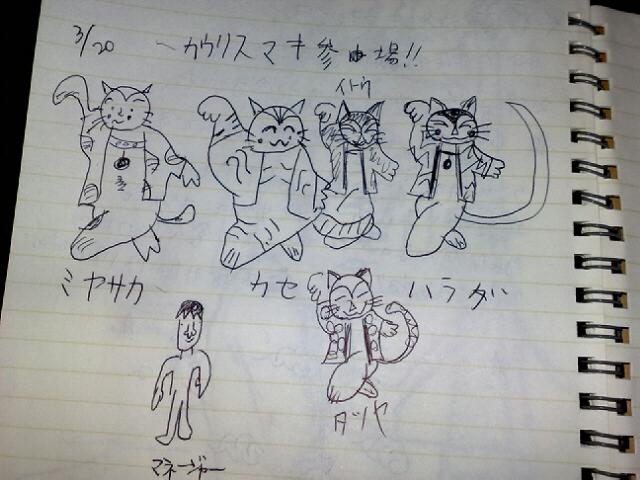 3/20 〜カウリスマキ参上場!!
イトウ
ミヤサカ カセ ハラダハ
タツヤ
マネージャー